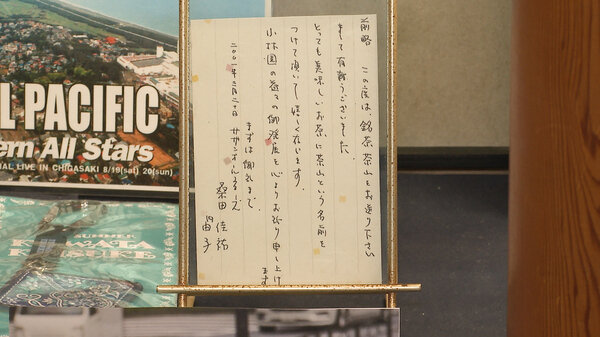 L PACIFIC
ern All Stars
IAL LIVE IN CHIGASAKI 8/19(sat) 20(sun)
SUMMER
KUWATA
KEISUKE
前略 この度は、銘茶茶山をお送り下さい
まして有難うございました。
とっても美味しいお茶に茶山という名前を
つけて頂いて嬉しく存じます。
小林園の益々の御発展を心よりお祈り申し上げ
ます
まずは御礼まで
二〇〇一年二月二十日
サザンオールスターズ
桑田 佳祐
由子